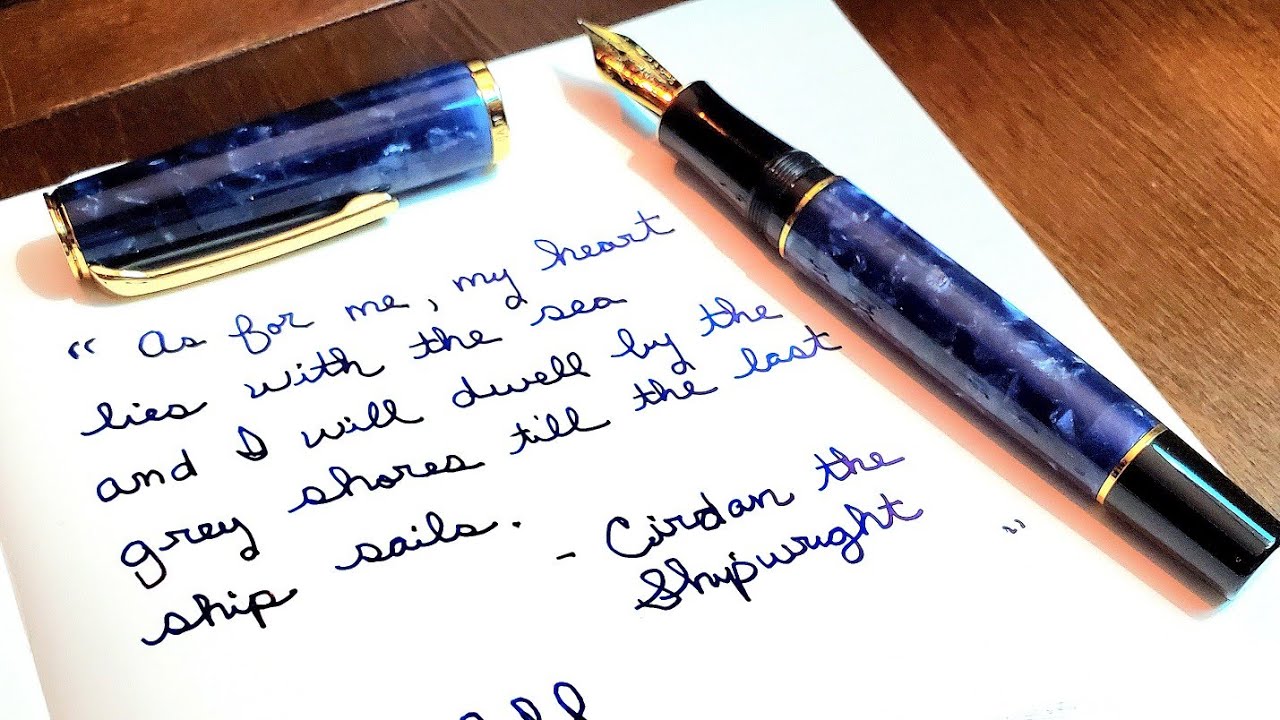 “ As for me, my heart
lies with the sea
and I will dwell by the
grey shores till the last
ship sails.
- Cirdan the
Shipwright ”